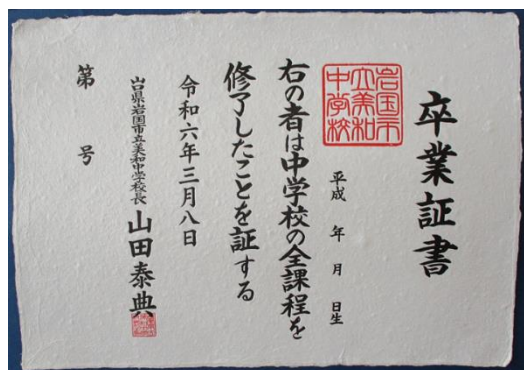 卒業証書
岩国市
立美和
中学校
平成 年 月 日生
右の者は中学校の全課程を
修了したことを証する
令和六年三月八日
山口県岩国市立美和中学校長 山田泰典
第 号